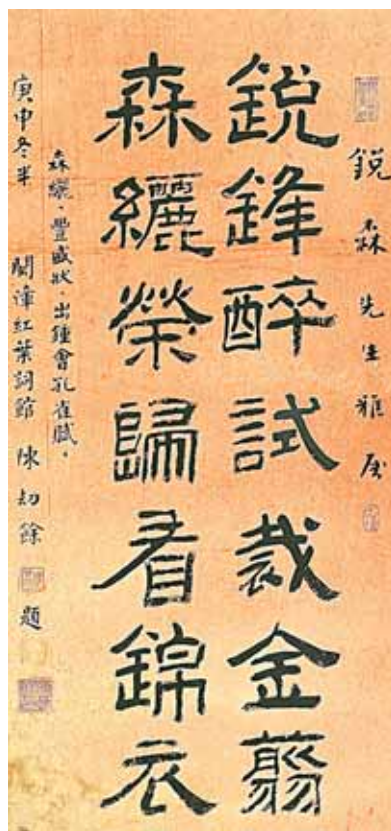 銳森先生雅屬
銳鋒醉試裁金翦
森纚榮歸看錦衣
森纚，豐盛狀，出鍾會孔雀賦。
庚申冬半 閩漳紅葉詞館 陳劫餘 題